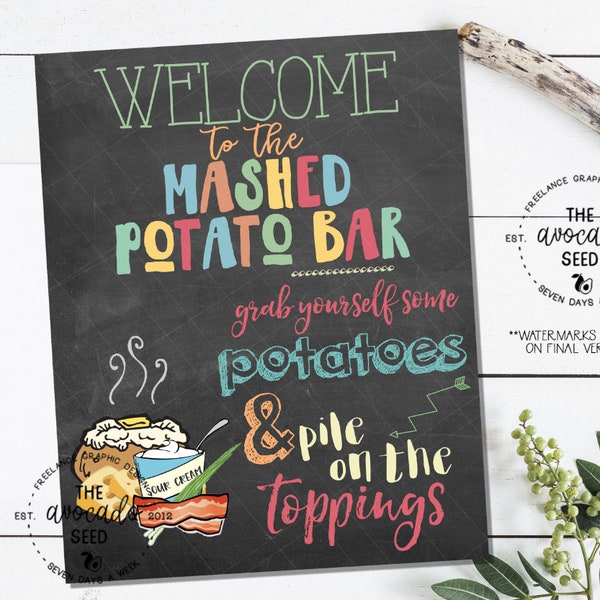 WELCOME
to the
MASHED
POTATO BAR
grab yourself some
potatoes
& pile
on the
toppings
SOUR CREAM
FREELANCE GRAPHIC DESIGN
THE
EST. avocado 2012
SEED
SEVEN DAYS A WEEK
FREELANCE GRAPHIC
THE
EST. avocado
SEED
SEVEN DAYS A
**WATERMARKS
ON FINAL VER